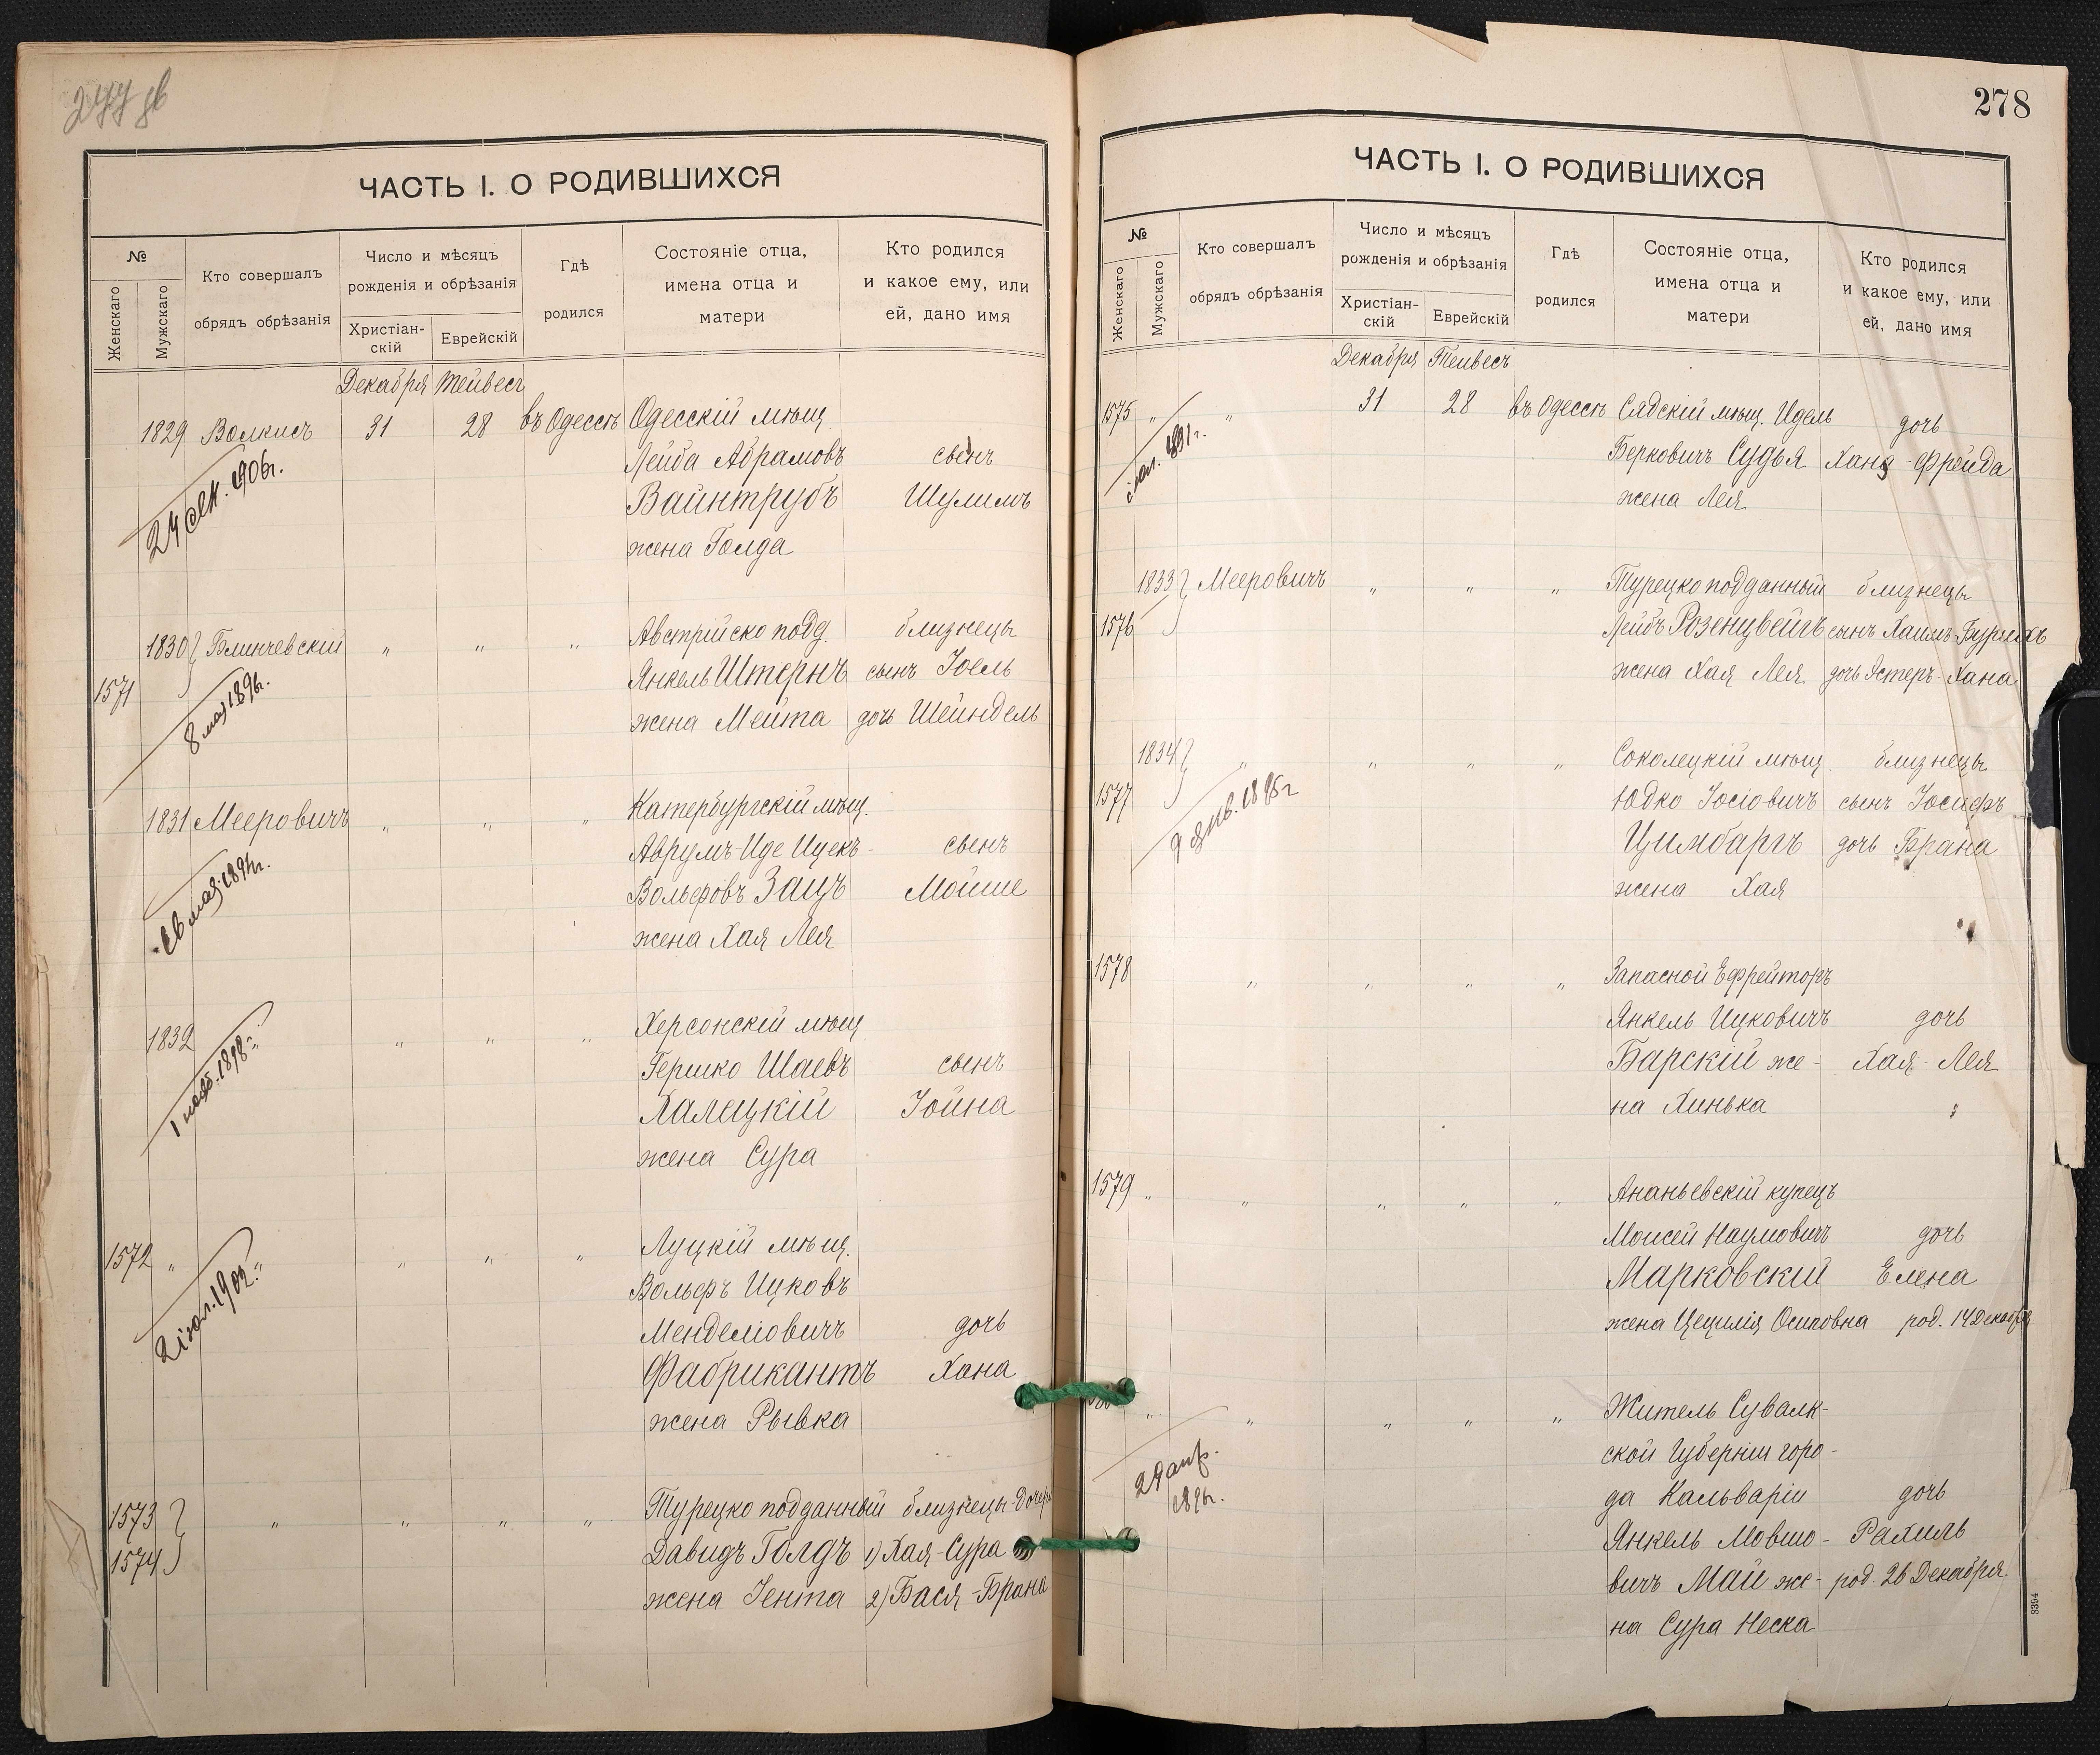 277 об
ЧАСТЬ I. О РОДИВШИХСЯ
№
Женскаго
Мужскаго
Кто совершалъ
обрядъ обрѣзанія
Число и мѣсяцъ
рожденія и обрѣзанія
Христіан-
скій
Еврейскій
Гдѣ
родился
Состояніе отца,
имена отца и
матери
Кто родился
и какое ему, или
ей, дано имя
Декабря Тейвесъ
1829 Волкисъ 31 28 въ Одессѣ Одесскій мѣщ.
Лейба Абрамовъ сынъ
Вайнтрубъ Шулимъ
жена Голда
1906г.
1830 Блинчевскій " " " Австрійско подд. близнецы
1571 Янкель Штернъ сынъ Іоель
жена Мейта дочь Шейндель
8 мая 1896г.
1831 Мееровичъ " " " Катербургскій мѣщ.
Аврумъ-Иде Ицекъ- сынъ
Вольфовъ Зацъ Мойше
жена Хая Лея
1832 " " " " Херсонскій мѣщ
Гершко Шаевъ сынъ
Халецкій Іойна
жена Сура
1 нояб. 1898г.
1572 " " " " " Луцкій мѣщ.
Вольфъ Ицковъ
Менделіовичъ дочь
Фабрикантъ Хана
жена Рывка
1573 " " " " Турецко подданный близнецы-дочери
1574 Давидъ Голдъ 1) Хая-Сура
жена Іента 2) Бася-Брана
278
ЧАСТЬ I. О РОДИВШИХСЯ
№
Женскаго
Мужскаго
Кто совершалъ
обрядъ обрѣзанія
Число и мѣсяцъ
рожденія и обрѣзанія
Христіан-
скій
Еврейскій
Гдѣ
родился
Состояніе отца,
имена отца и
матери
Кто родился
и какое ему, или
ей, дано имя
Декабря Тейвесъ
1575 " " 31 28 въ Одессѣ Сядскій мѣщ. Идель дочь
Берковичъ Судья Хана-Фрейда
жена Лея
1833 Мееровичъ " " " Турецко подданный близнецы
1576 Лейбъ Розенцвейгъ сынъ Хаимъ
жена Хая Лея дочь Эстеръ-Хана
1834 " " " " Соколецкій мѣщ. близнецы
1577 Юдко Іосіовичъ сынъ Іосифъ
Цимбаргъ дочь Брана
жена Хая
1578 " " " " Запасной Ефрейторъ
Янкель Ицковичъ дочь
Барскій же- Хая-Лея
на Хинька
1579 " " " " " Ананьевскій купецъ
Моисей Наумовичъ дочь
Марковскій Елена
жена Цецилія Осиповна род. 14 Декабря
" " " " " Житель Сувалк-
ской Губерніи горо-
да Кальваріи дочь
Янкель Мовшо- Рахиль
вичъ Май же- род. 26 Декабря
на Сура Неска
29 апр.
1896г.
8394